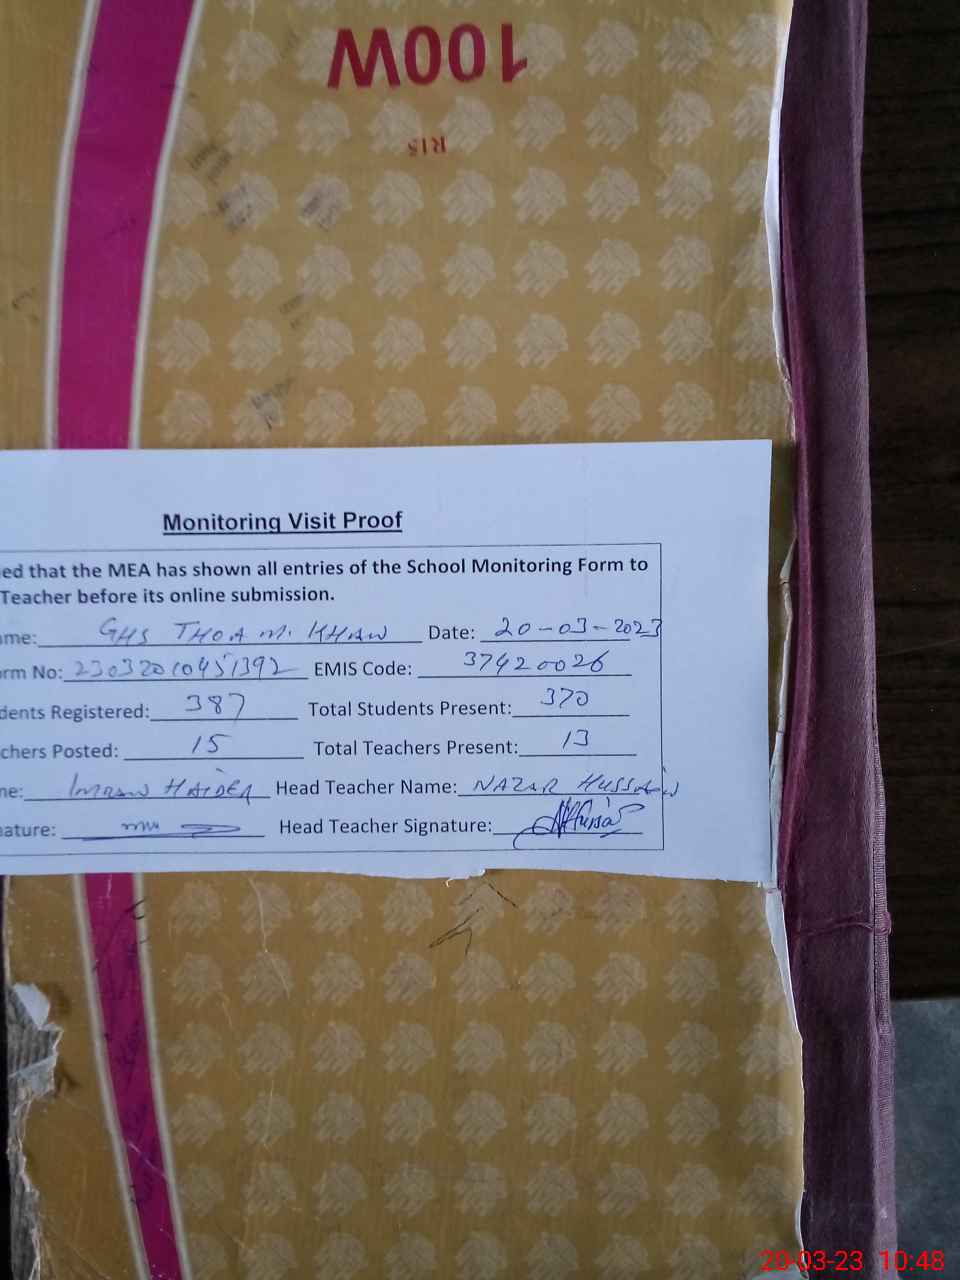 100W
R15
Monitoring Visit Proof
ed that the MEA has shown all entries of the School Monitoring Form to
Teacher before its online submission.
ame: GHS THOA M. KHAN Date: 20-03-2023
orm No: 23032010451392 EMIS Code: 37420026
dents Registered: 387 Total Students Present: 370
chers Posted: 15 Total Teachers Present: 13
me: IMRAN HAIDER Head Teacher Name: NAZAR HUSSAIN
nature: Head Teacher Signature:
20-03-23 10:48